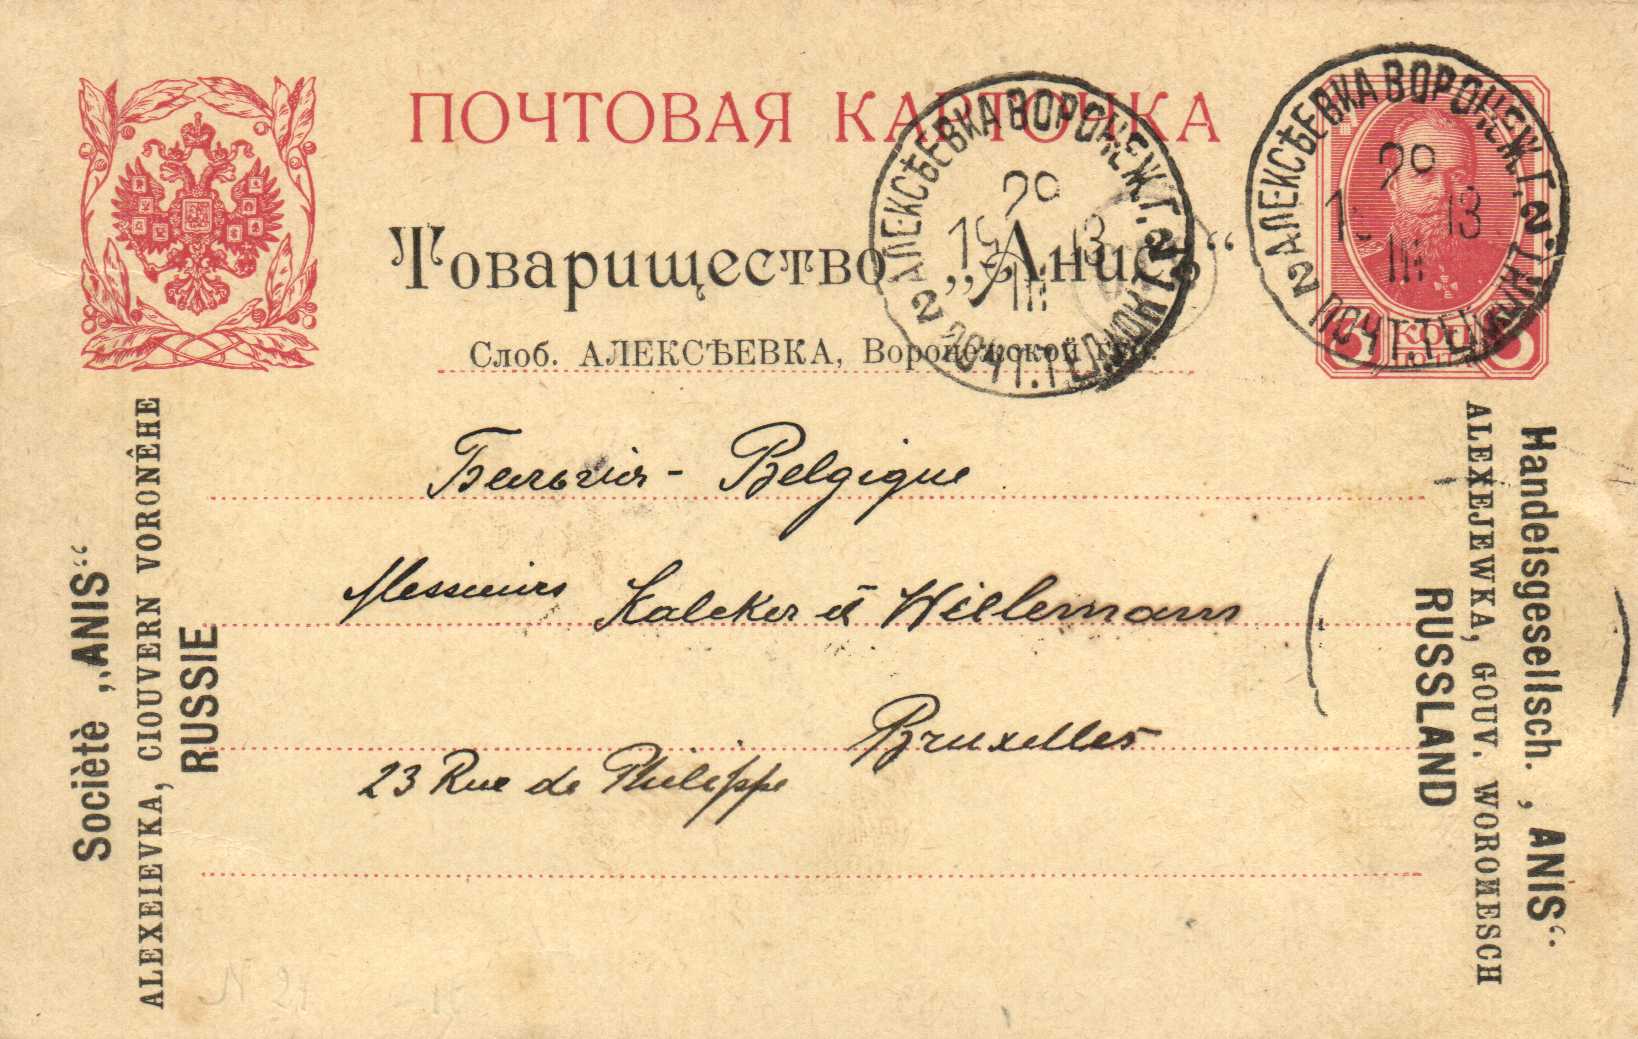 ПОЧТОВАЯ КАРТОЧКА
Товарищество „Анис“
Слоб. АЛЕКСѢЕВКА, Воронежской губ.
АЛЕКСѢЕВКА ВОРОНЕЖ. Г.
2 ПОЧТ. ТЕЛ. КОНТ. 2
29
III
1913
АЛЕКСѢЕВКА ВОРОНЕЖ. Г.
2 ПОЧТ. ТЕЛ. КОНТ. 2
29
III
13
КОП
Бельгія - Belgique
Messieurs Kalcker & Willemann
Bruxelles
23 Rue de Philippe
Sociètè „ANIS“
ALEXEIEVKA, CIOUVERN VORONÊHE
RUSSIE
Handeisgesellsch. , ANIS“
ALEXEJEWKA, GOUV. WOROИESCH
RUSSLAND